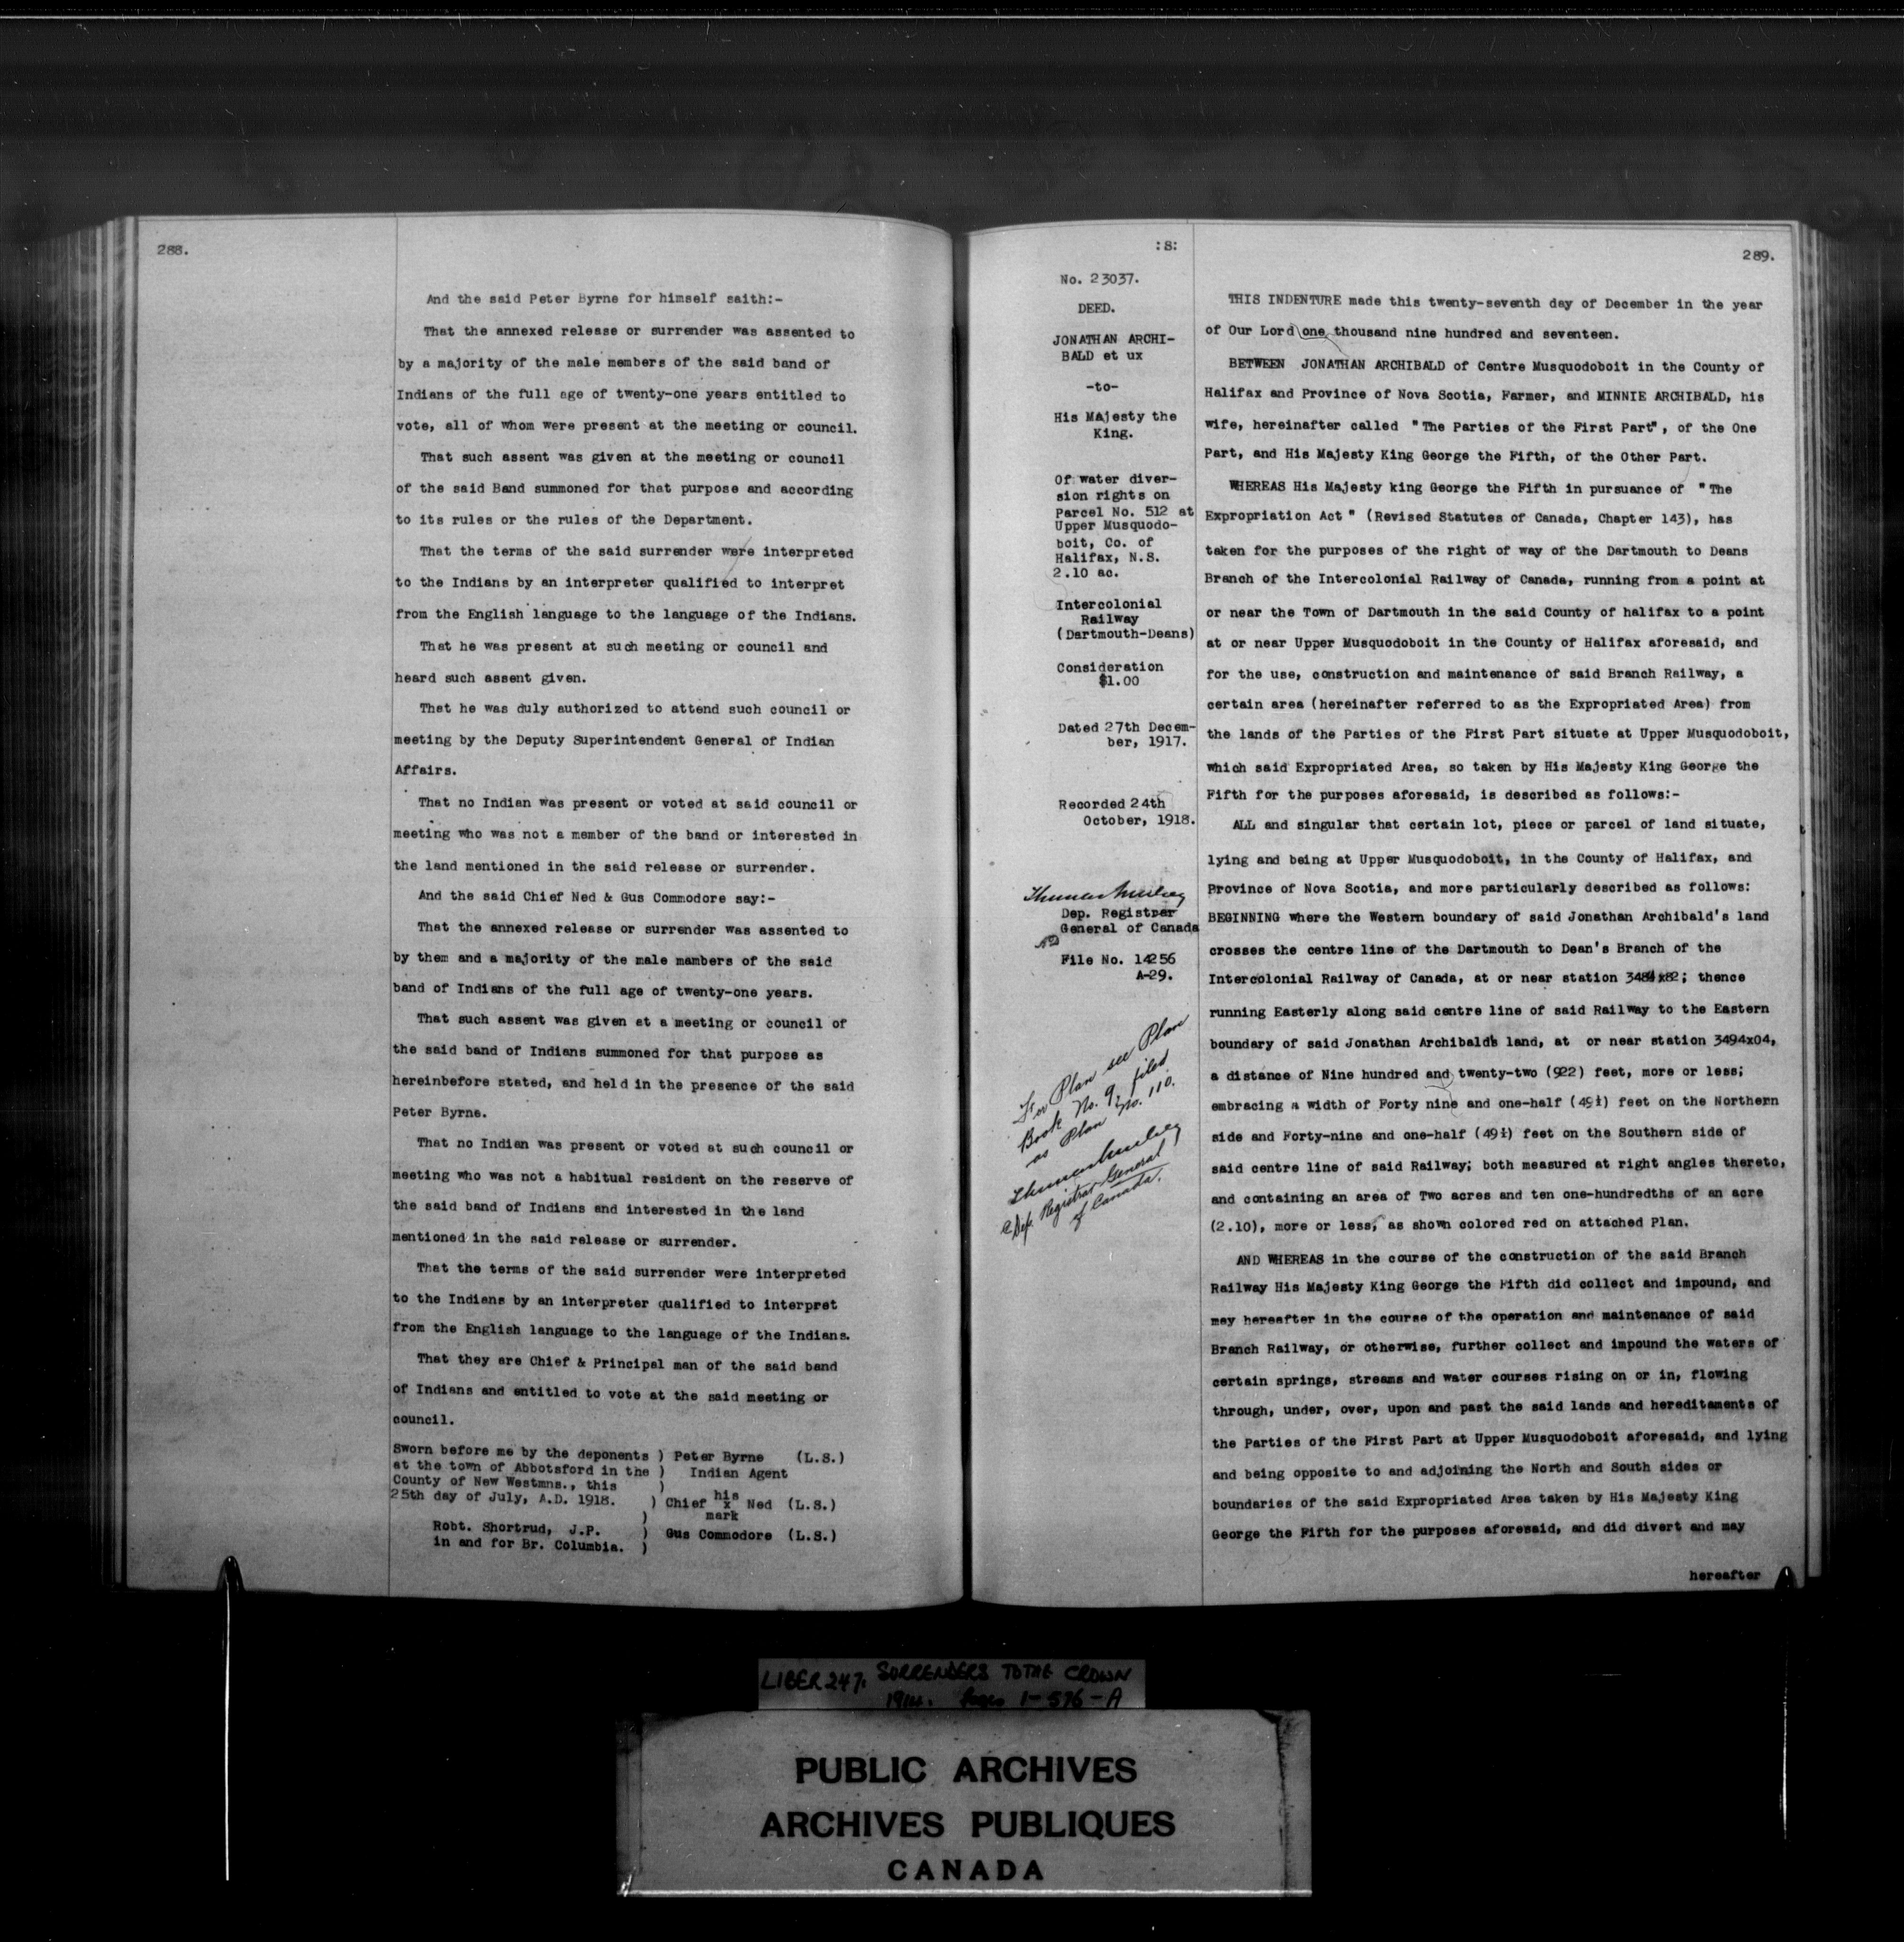 288.
And the said Peter Byrne for himself saith:-
That the annexed release or surrender was assented to
by a majority of the male members of the said band of
Indians of the full age of twenty-one years entitled to
vote, all of whom were present at the meeting or council.
That such assent was given at the meeting or council
of the said Band summoned for that purpose and according
to its rules or the rules of the Department.
That the terms of the said surrender were interpreted
to the Indians by an interpreter qualified to interpret
from the English language to the language of the Indians.
That he was present at such meeting or council and
heard such assent given.
That he was duly authorized to attend such council or
meeting by the Deputy Superintendent General of Indian
Affairs.
That no Indian was present or voted at said council or
meeting who was not a member of the band or interested in
the land mentioned in the said release or surrender.
And the said Chief Ned & Gus Commodore say:-
That the annexed release or surrender was assented to
by them and a majority of the male mambers of the said
band of Indians of the full age of twenty-one years.
That such assent was given at a meeting or council of
the said band of Indians summoned for that purpose as
hereinbefore stated, and held in the presence of the said
Peter Byrne.
That no Indian was present or voted at such council or
meeting who was not a habitual resident on the reserve of
the said band of Indians and interested in the land
mentioned in the said release or surrender.
That the terms of the said surrender were interpreted
to the Indians by an interpreter qualified to interpret
from the English language to the language of the Indians.
That they are Chief & Principal man of the said band
of Indians and entitled to vote at the said meeting or
council.
Sworn before me by the deponents ) Peter Byrne (L.S.)
at the town of Abbotsford in the ) Indian Agent
County of New Westmns., this )
25th day of July, A.D. 1918. ) Chief his x mark Ned (L.S.)
)
Robt. Shortrud, J.P. ) Gus Commodore (L.S.)
in and for Br. Columbia. )
:8:
289.
No. 23037.
DEED.
JONATHAN ARCHI-
BALD et ux
-to-
His Majesty the
King.
Of water diver-
sion rights on
Parcel No. 512 at
Upper Musquodo-
boit, Co. of
Halifax, N.S.
2.10 ac.
Intercolonial
Railway
(Dartmouth-Deans)
Consideration
$1.00
Dated 27th Decem-
ber, 1917.
Recorded 24th
October, 1918.
Thomas Mulvey
Dep. Registrar
General of Canada
File No. 14256
A-29.
For Plan see Plan
Book No. 9, filed
as Plan No. 110.
Thomas Mulvey
Dep. Registrar General
of Canada.
THIS INDENTURE made this twenty-seventh day of December in the year
of Our Lord one thousand nine hundred and seventeen.
BETWEEN JONATHAN ARCHIBALD of Centre Musquodoboit in the County of
Halifax and Province of Nova Scotia, Farmer, and MINNIE ARCHIBALD, his
wife, hereinafter called "The Parties of the First Part", of the One
Part, and His Majesty King George the Fifth, of the Other Part.
WHEREAS His Majesty king George the Fifth in pursuance of "The
Expropriation Act" (Revised Statutes of Canada, Chapter 143), has
taken for the purposes of the right of way of the Dartmouth to Deans
Branch of the Intercolonial Railway of Canada, running from a point at
or near the Town of Dartmouth in the said County of halifax to a point
at or near Upper Musquodoboit in the County of Halifax aforesaid, and
for the use, construction and maintenance of said Branch Railway, a
certain area (hereinafter referred to as the Expropriated Area) from
the lands of the Parties of the First Part situate at Upper Musquodoboit,
which said Expropriated Area, so taken by His Majesty King George the
Fifth for the purposes aforesaid, is described as follows:-
ALL and singular that certain lot, piece or parcel of land situate,
lying and being at Upper Musquodoboit, in the County of Halifax, and
Province of Nova Scotia, and more particularly described as follows:
BEGINNING where the Western boundary of said Jonathan Archibald's land
crosses the centre line of the Dartmouth to Dean's Branch of the
Intercolonial Railway of Canada, at or near station 3484x82; thence
running Easterly along said centre line of said Railway to the Eastern
boundary of said Jonathan Archibald's land, at or near station 3494x04,
a distance of Nine hundred and twenty-two (922) feet, more or less;
embracing a width of Forty nine and one-half (49½) feet on the Northern
side and Forty-nine and one-half (49½) feet on the Southern side of
said centre line of said Railway; both measured at right angles thereto,
and containing an area of Two acres and ten one-hundredths of an acre
(2.10), more or less, as shown colored red on attached Plan.
AND WHEREAS in the course of the construction of the said Branch
Railway His Majesty King George the Fifth did collect and impound, and
may hereafter in the course of the operation and maintenance of said
Branch Railway, or otherwise, further collect and impound the waters of
certain springs, streams and water courses rising on or in, flowing
through, under, over, upon and past the said lands and hereditaments of
the Parties of the First Part at Upper Musquodoboit aforesaid, and lying
and being opposite to and adjoining the North and South sides or
boundaries of the said Expropriated Area taken by His Majesty King
George the Fifth for the purposes aforesaid, and did divert and may
hereafter
LIBER 247. SURRENDERS TO THE CROWN
1914. Pages 1-576-A
PUBLIC ARCHIVES
ARCHIVES PUBLIQUES
CANADA